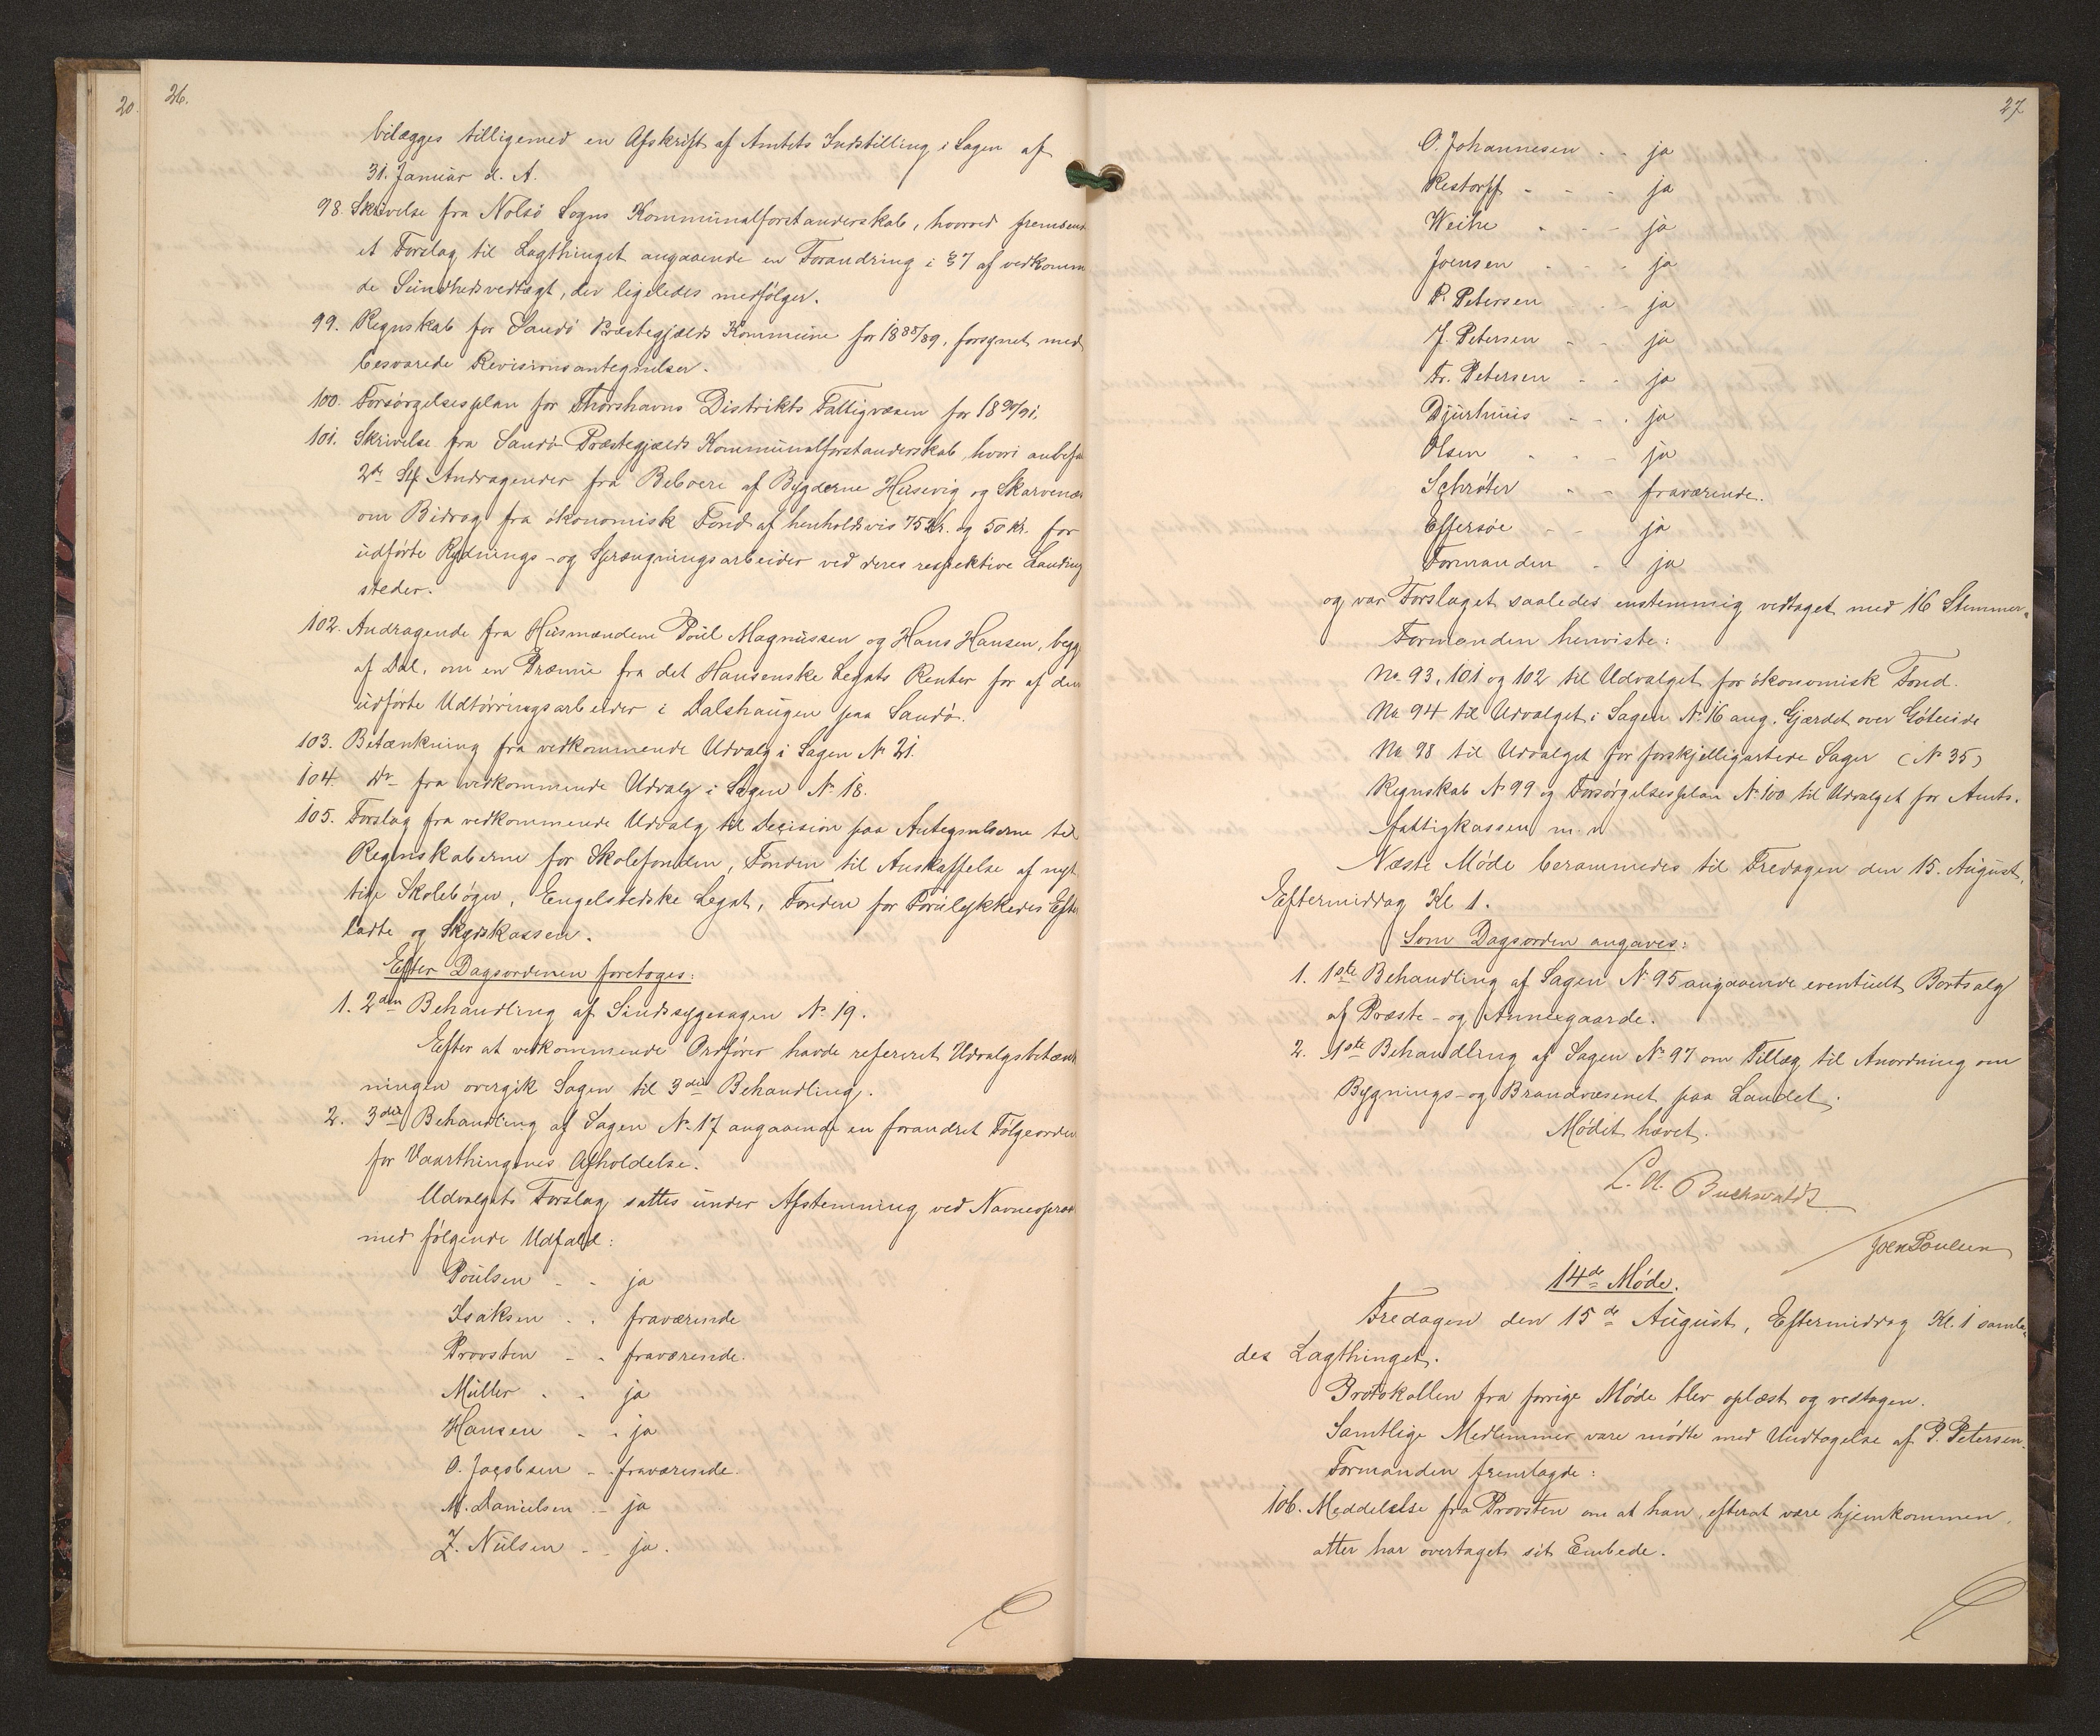 20
26.
bilægges tilligemed en Afskrift af Amtets Indstilling i Sagen af
31. Januar d. A.
98. Skrivelse fra Nolsö Sogns Kommunalforstanderskab, hvorved fremsend
et Forslag til Lagthinget angaaende en Forandring i § 7 af vedkomm
de Sundhedsvedtægt, der ligeledes medfølger.
99. Regnskab for Sandö Præstegjælds Kommune for 1888/89, forsynet med
besvarede Revisionsantegnelser.
100. Forsörgelsesplan for Thorshavns Distrikts Fattigvæsen for 1890/91.
101. Skrivelse fra Sandö Præstegjælds Kommunalforstanderskab, hvori anbefa
2de Andragender fra Beboere af Bygderne Husevig og Skarvenæs
om Bidrag fra økonomisk Fond af henholdsvis 75 Kr. og 50 Kr. for
udførte Rydnings- og Sprængningsarbeider ved deres respektive Landing
steder.
102. Andragende fra Husmændene Poul Magnussen og Hans Hansen, begg
af Dal, om en Præmie fra det Hansenske Legats Renter for af dem
udførte Udtörringsarbeider i Dalshaugen paa Sandö.
103. Betænkning fra vedkommende Udvalg i Sagen No 21.
104. Do fra vedkommende Udvalg i Sagen No 18.
105. Forslag fra vedkommende Udvalg til Decision paa Antegnelserne til
Regnskaberne for Skolefonden, Fonden til Anskaffelse af nyt
tige Skolebøger, Engelstedske Legat, Fonden for Forulykkedes Efter
ladte og Skydskassen.
Efter Dagsordenen foretoges:
1. 2den Behandling af Sindssygesagen No 19.
Efter at vedkommende Ordfører havde refereret Udvalgsbetænk
ningen overgik Sagen til 3die Behandling.
2. 3die Behandling af Sagen No 17 angaaende en forandret Følgeorden
for Vaarthingenes Afholdelse.
Udvalgets Forslag sattes under Afstemning ved Navneopraab
med følgende Udfald:
Poulsen - - ja
Isaksen - - fraværende
Provsten - - fraværende.
Müller - - ja
Hansen - - ja
O. Jacobsen - - fraværende.
M. Danielsen - - ja
Z. Nielsen - - ja.
27
O. Johannesen - - ja
Restorff - - - ja
Weihe - - - ja
Joensen - - - ja
P. Petersen - - ja
J. Petersen - - ja
Fr. Petersen - - ja
Djurhuus - - - ja
Olsen - - - ja
Schrøter - - fraværende.
Effersøe - - ja
Formanden - ja
og var Forslaget saaledes enstemmig vedtaget med 16 Stemmer.
Formanden henviste:
No 93, 101 og 102 til Udvalget for økonomisk Fond.
No 94 til Udvalget i Sagen No 16 ang. Gjærdet over Göteeide
No 98 til Udvalget for forskjelligartede Sager (No 35)
Regnskab No 99 og Forsørgelsesplan No 100 til Udvalget for Amts-
fattigkassen m. v.
Næste Møde berammedes til Fredagen den 15. August,
Eftermiddag Kl. 1.
Som Dagsorden angaves:
1. 1ste Behandling af Sagen No 95 angaaende eventuelt Bortsalg
af Præste- og Annexgaarde.
2. 1ste Behandling af Sagen No 97 om Tillæg til Anordning om
Bygnings- og Brandvæsenet paa Landet.
Mødet hævet.
C. A. Buchwaldt
Joen Poulsen
14de Møde.
Fredagen den 15de August, Eftermiddag Kl. 1 samle-
des Lagthinget.
Protokollen fra forrige Møde blev oplæst og vedtagen.
Samtlige Medlemmer vare mødte med Undtagelse af P. Petersen.
Formanden fremlagde:
106. Meddelelse fra Provsten om at han, efterat være hjemkommen,
atter har overtaget sit Embede.